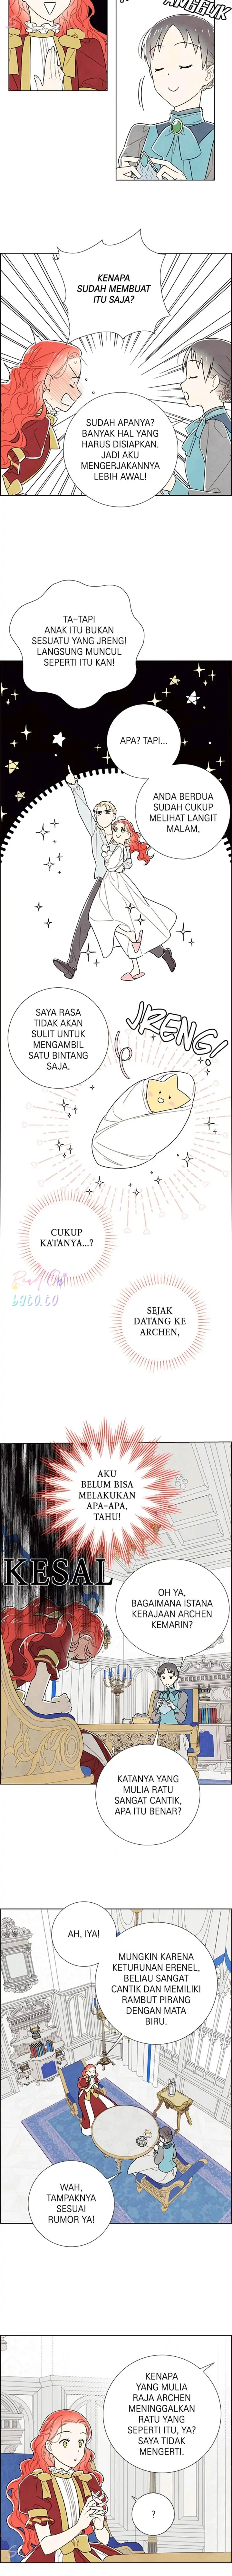 ANGGUK
KENAPA
SUDAH MEMBUAT
ITU SAJA?
SUDAH APANYA?
BANYAK HAL YANG
HARUS DISIAPKAN.
JADI AKU
MENGERJAKANNYA
LEBIH AWAL!
TA-TAPI
ANAK ITU BUKAN
SESUATU YANG JRENG!
LANGSUNG MUNCUL
SEPERTI ITU KAN!
APA? TAPI...
ANDA BERDUA
SUDAH CUKUP
MELIHAT LANGIT
MALAM,
JRENG!
SAYA RASA
TIDAK AKAN
SULIT UNTUK
MENGAMBIL
SATU BINTANG
SAJA.
CUKUP
KATANYA...?
Read On
bato.to
SEJAK
DATANG KE
ARCHEN,
AKU
BELUM BISA
MELAKUKAN
APA-APA,
TAHU!
KESAL
OH YA,
BAGAIMANA ISTANA
KERAJAAN ARCHEN
KEMARIN?
KATANYA YANG
MULIA RATU
SANGAT CANTIK,
APA ITU BENAR?
AH, IYA!
MUNGKIN KARENA
KETURUNAN ERENEL,
BELIAU SANGAT
CANTIK DAN MEMILIKI
RAMBUT PIRANG
DENGAN MATA
BIRU.
WAH,
TAMPAKNYA
SESUAI
RUMOR YA!
KENAPA
YANG MULIA
RAJA ARCHEN
MENINGGALKAN
RATU YANG
SEPERTI ITU, YA?
SAYA TIDAK
MENGERTI.
?